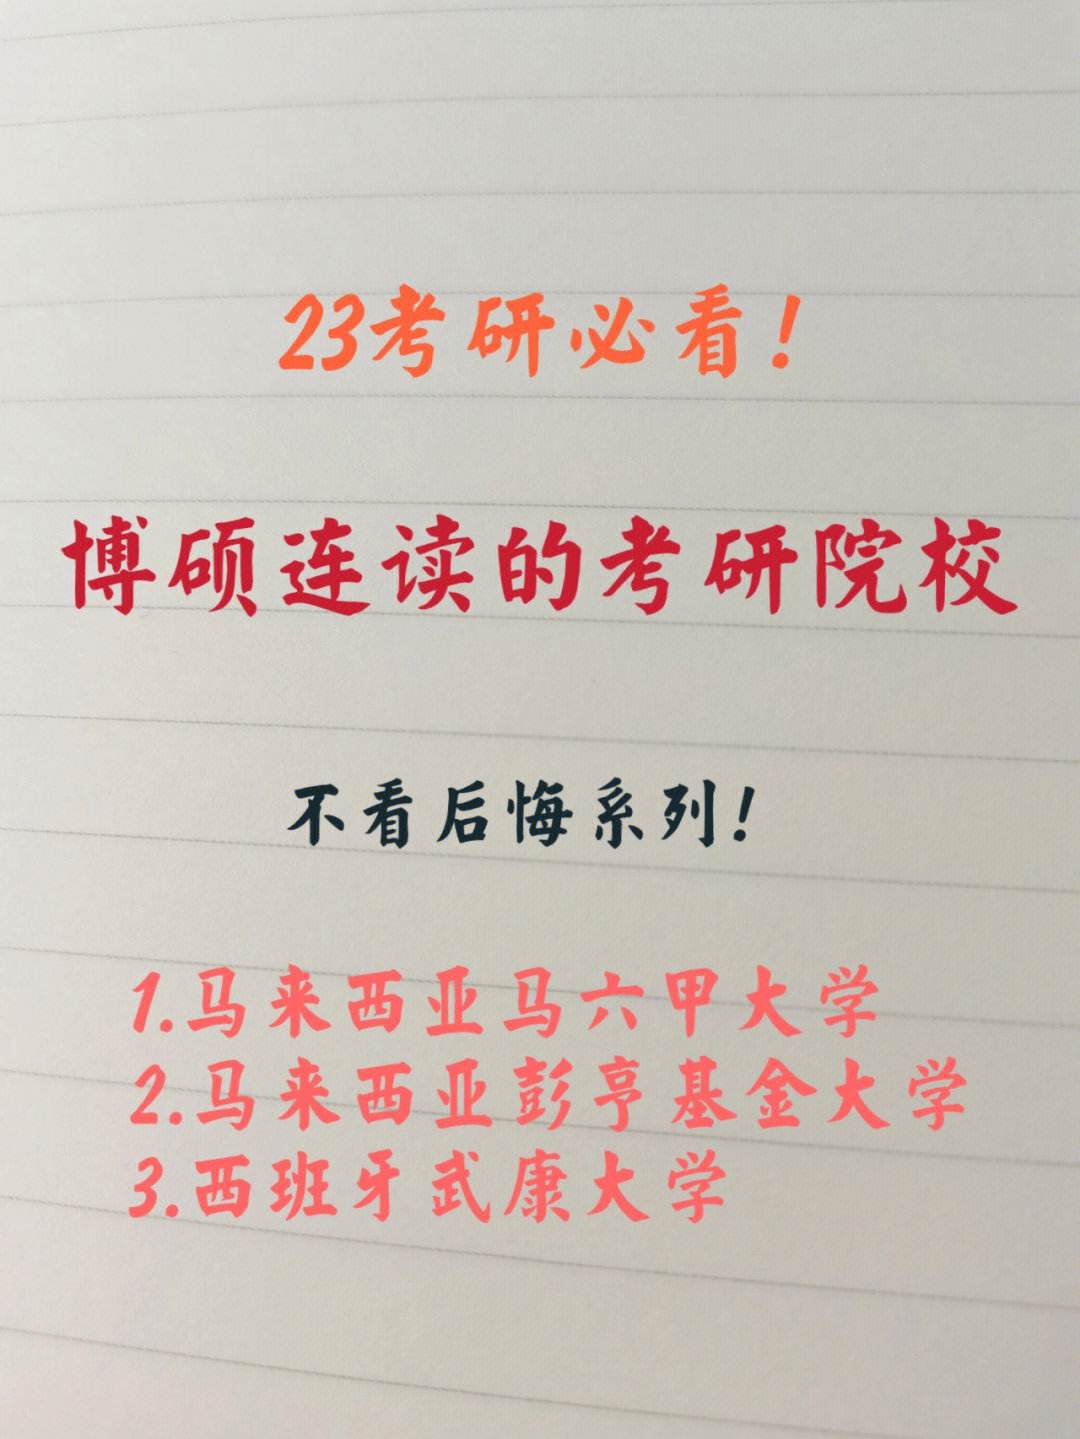 23考研必看！
博硕连读的考研院校
不看后悔系列！
1.马来西亚马六甲大学
2.马来西亚彭亨基金大学
3.西班牙武康大学